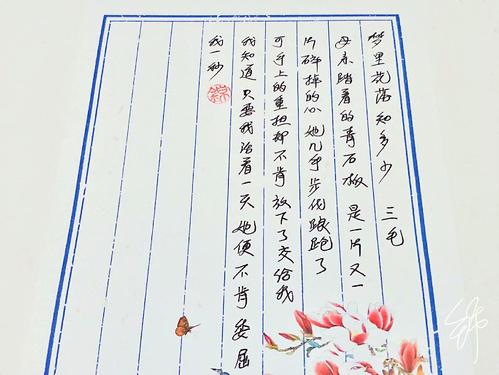 梦里花落知多少 三毛
母亲踏着的青石板 是一片又一
片碎掉的心 她几乎步伐踉跄了
可手上的重担却不肯放下了交给我
我知道 只要我活着一天 她便不肯委屈
我一秒